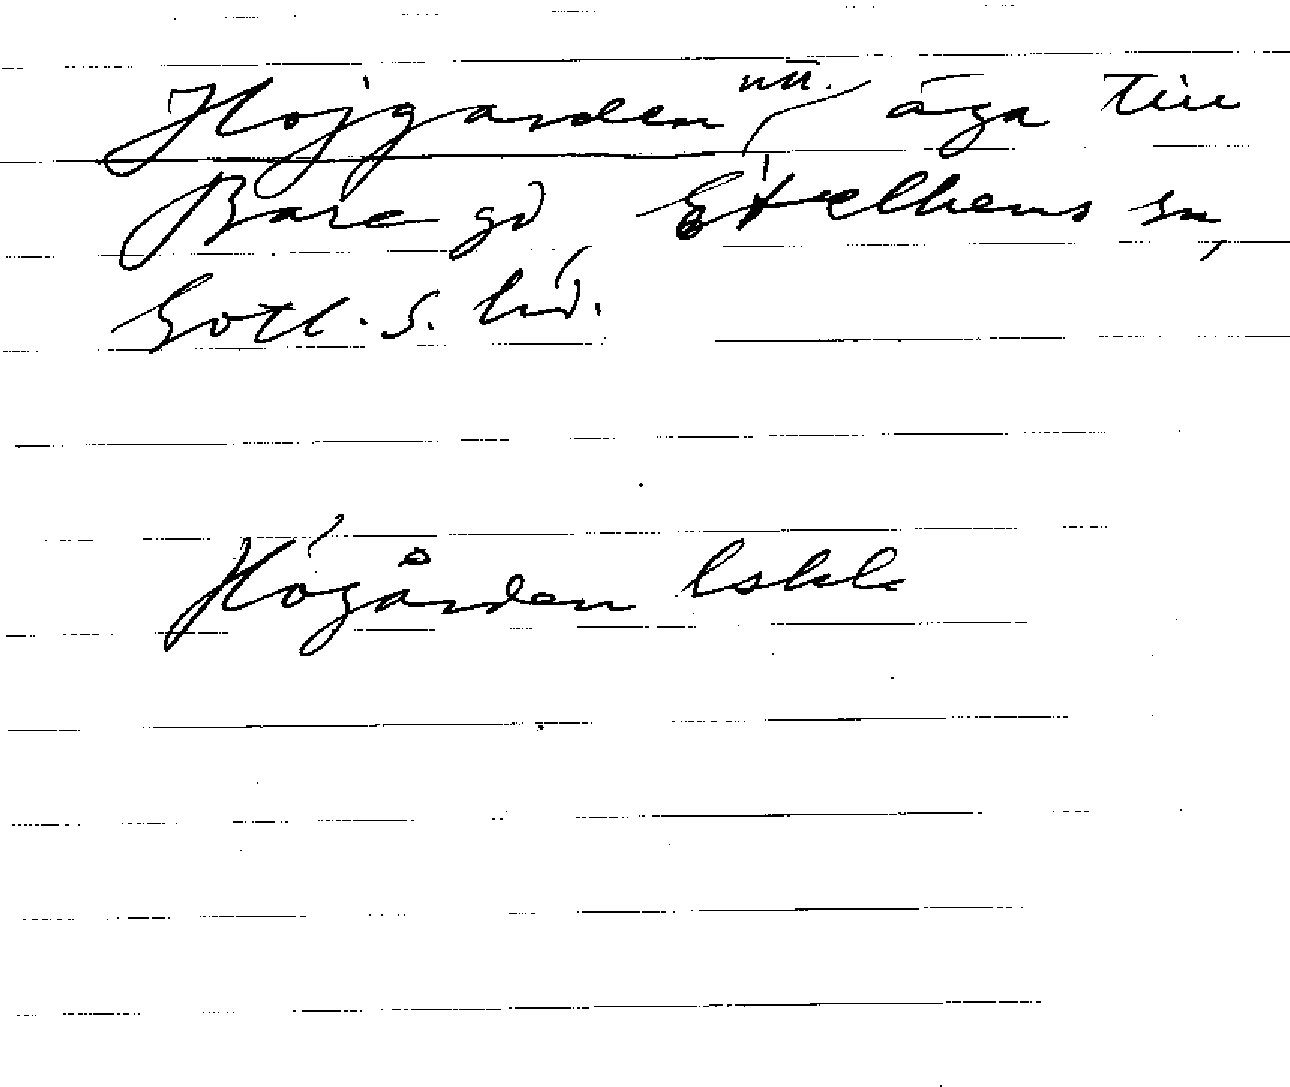 Höjgarden nu. äga till
Bare gd Etelhems sn,
Gotl. S. hd.
Högården lskk